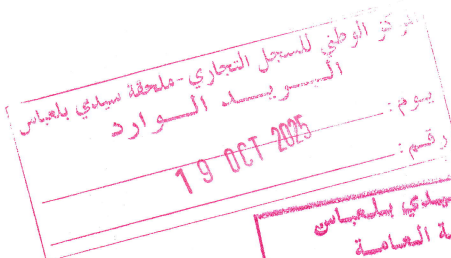 المركز الوطني للسجل التجاري - ملحقة سيدي بلعباس
البريد الوارد
يوم :
19 OCT 2025
رقم :
سيدي بلعباس
العامة